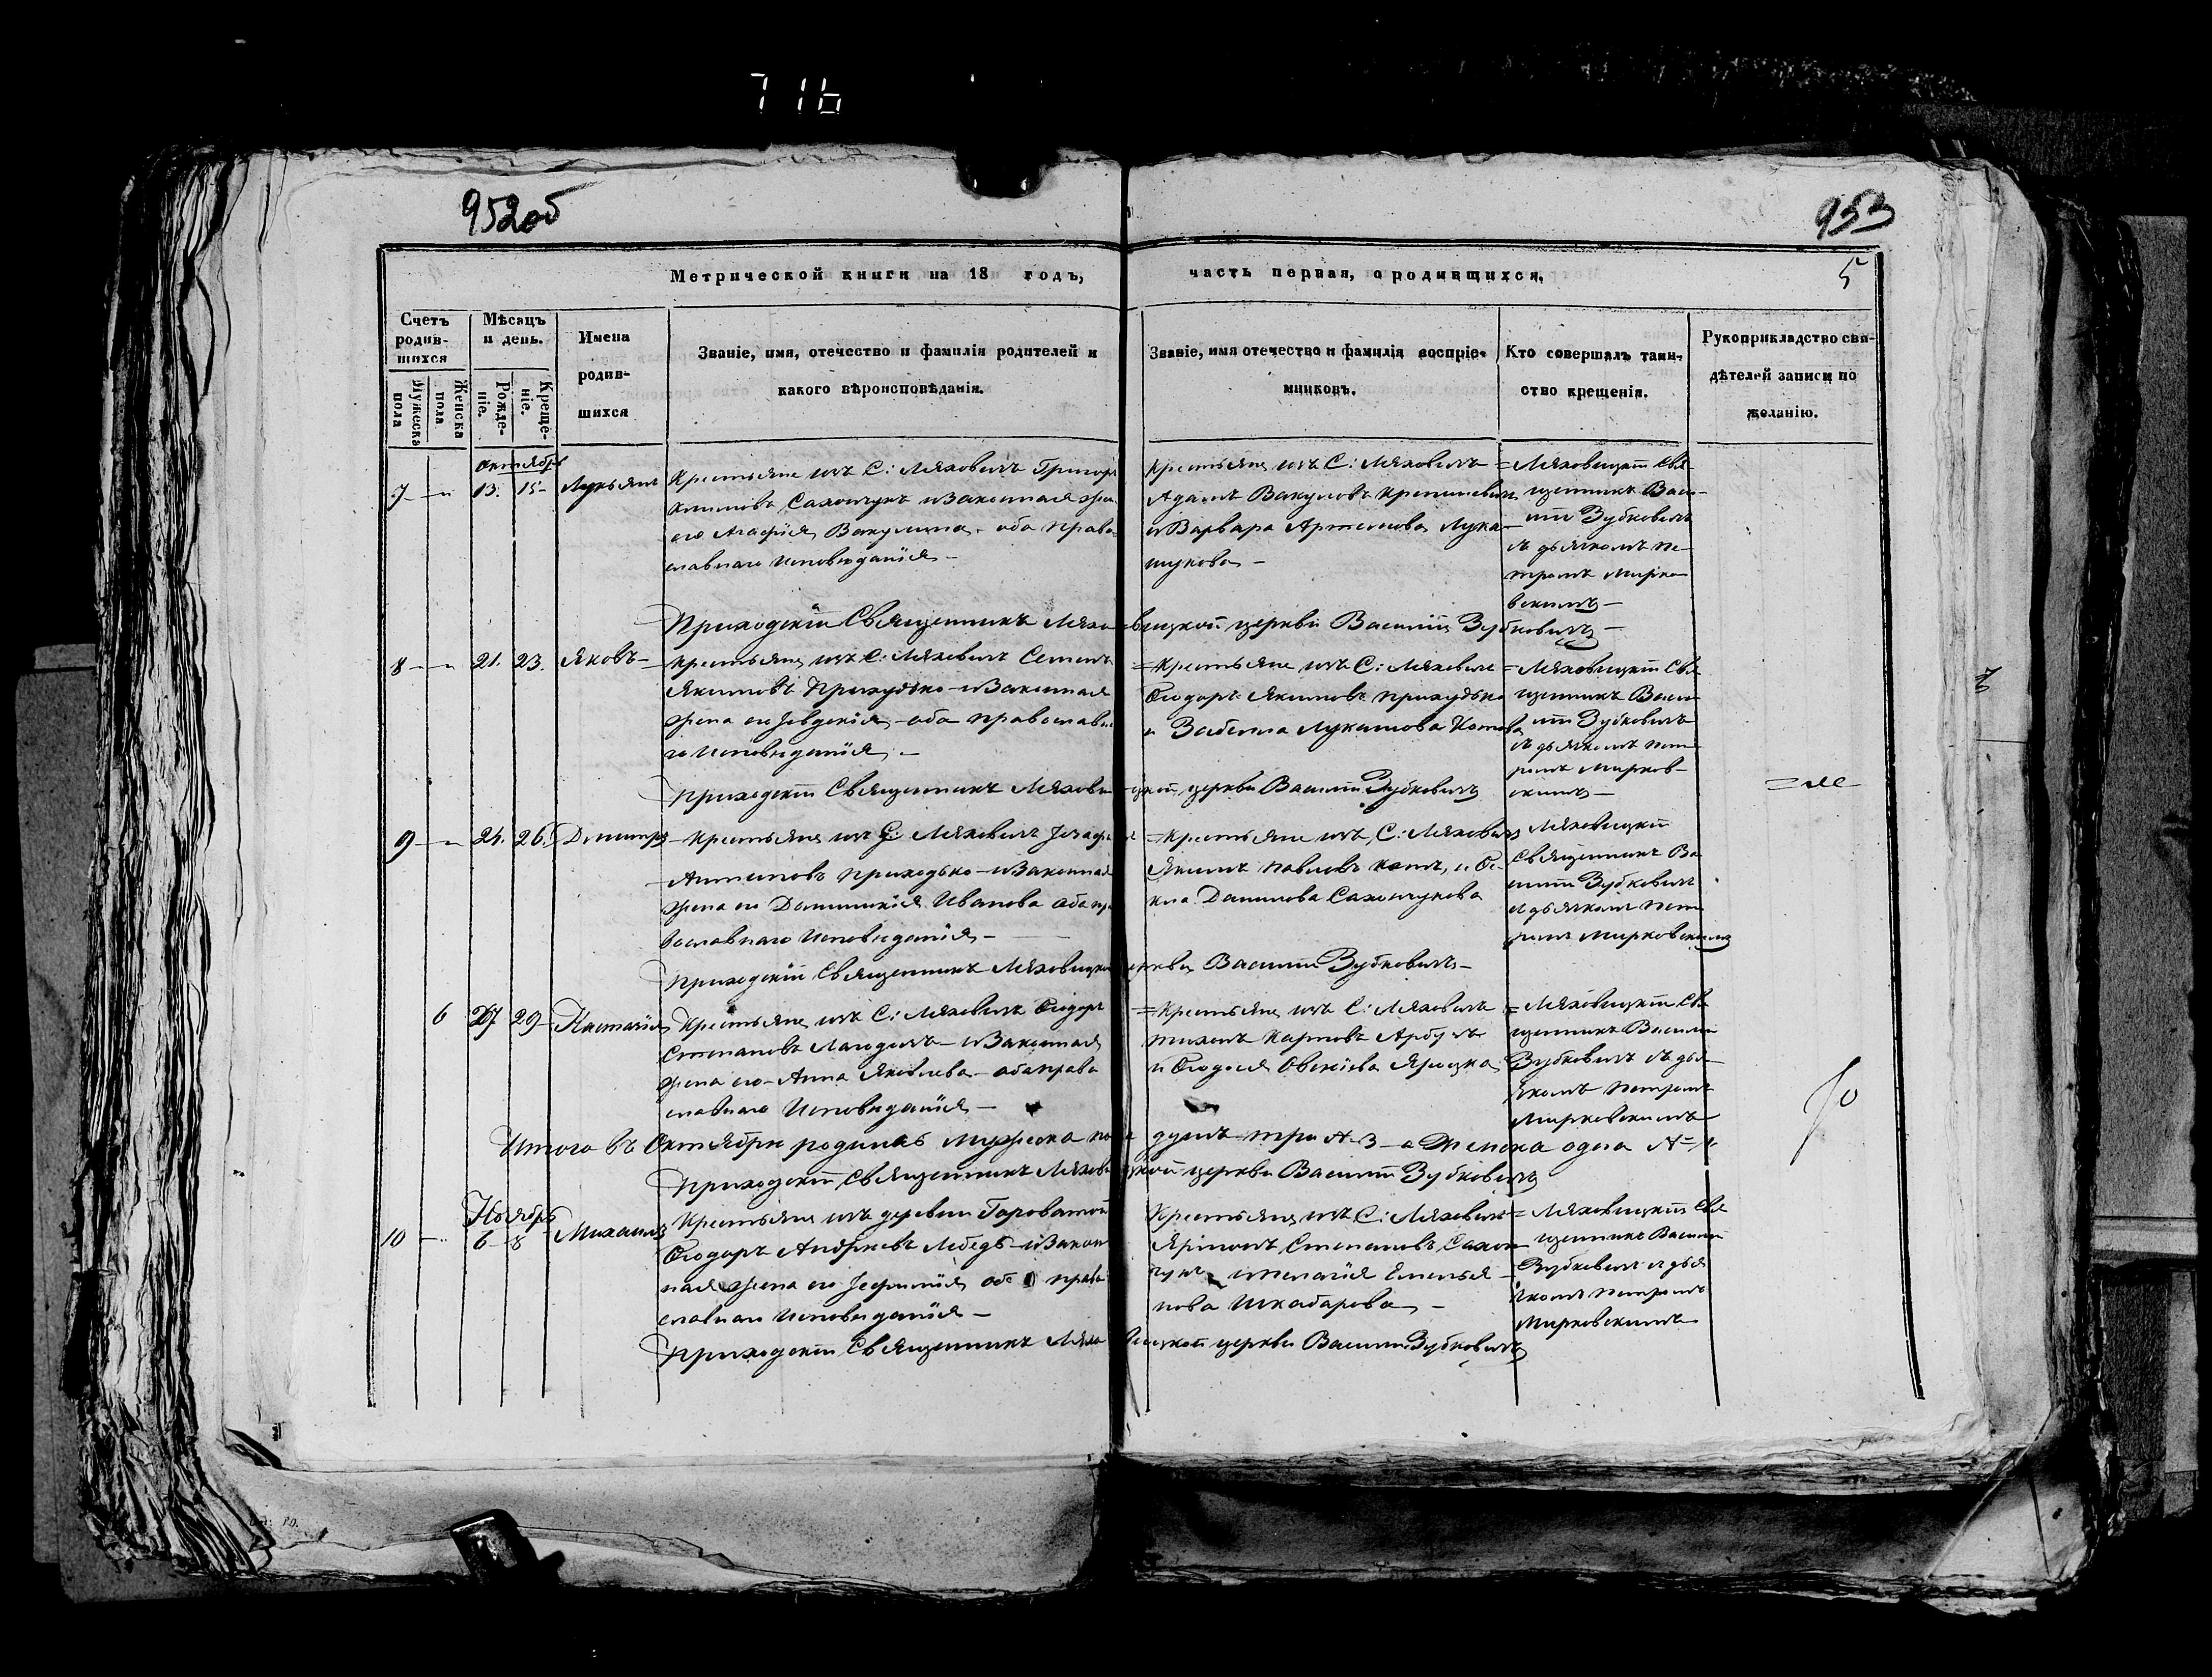 716
952об
953
Метрической книги на 18 годъ, часть первая, о родившихся.
5
Счетъ родив-шихся
Мужеска пола
Женска пола
Мѣсяцъ и день.
Рожде-ніе.
Креще-ніе.
Имена родив-шихся
Званіе, имя, отечество и фамилія родителей и какого вѣроисповѣданія.
Званіе, имя отечество и фамилія воспріе-мниковъ.
Кто совершалъ таин-ство крещенія.
Рукоприкладство сви-дѣтелей записи по желанію.
Октябрь
7 13. 15 Лукьянъ
Крестьяне изъ С: Ляховичъ Григор
Сахончукъ и Законная жен
его Агафія Вакулина оба право
славнаго Исповѣданія
Крестьяне изъ С: Ляховичъ
Адамъ Вакуловъ
и Варвара Артемова Лука
шукова
Ляховицкій Свя
щенникъ Васи
лій Зубковичъ
съ дьячкомъ Пе
тромъ Мирко
вскимъ
Приходскій Священникъ Ляховицкой церкви Василій Зубковичъ
8 21. 23. Яковъ
Крестьяне изъ С: Ляховичъ Семенъ
Якимовъ Приходько и Законная
жена его Іевдокія оба православна
го Исповѣданія
Крестьяне изъ С: Ляховичъ
Ѳіодоръ Якимовъ Приходько
и Лукашова Котова
Ляховицкій Свя
щенникъ Васи
лій Зубковичъ
съ дьячкомъ Пет
ромъ Мирков
скимъ
Приходскій Священникъ Ляховицкой церкви Василій Зубковичъ
9 24. 26. Димитрій
Крестьяне изъ С: Ляховичъ
Антоновъ Приходько и Законная
жена его Доминикія Иванова оба пра
вославнаго Исповѣданія
Крестьяне изъ С: Ляховичъ
Якимъ Павловъ Котъ, и Ѳе
кла Данилова Сахончукова
Ляховицкій
Священникъ Ва
силій Зубковичъ
съ дьячкомъ Пет
ромъ Мирковскимъ
Приходскій Священникъ Ляховицкой церкви Василій Зубковичъ
6 27 29 Настасія
Крестьяне изъ С: Ляховичъ Ѳіодоръ
Степановъ Лагодичъ и Законная
жена его Анна Яковлева оба право
славнаго Исповѣданія
Крестьяне изъ С: Ляховичъ
Тихонъ Карповъ
и Ѳіодосія
Ляховицкій Свя
щенникъ Василій
Зубковичъ съ дья
чкомъ Петромъ
Мирковскимъ
Итого въ Октябрѣ родилось мужеска пола душъ три № 3 а женска одна № 1.
Приходскій Священникъ Ляховицкой церкви Василій Зубковичъ
Ноябрь
10 6 8 Михаилъ
Крестьяне изъ деревни Гороватой
Ѳіодоръ Андреевъ Лебедь и Закон
ная жена его Іефимія оба право
славнаго Исповѣданія
Крестьяне изъ С: Ляховичъ
Степановъ Сахон
чукъ и Пелагія Емелья
нова Шкабарова
Ляховицкій Свя
щенникъ Василій
Зубковичъ съ дья
чкомъ Петромъ
Мирковскимъ
Приходскій Священникъ Ляховицкой церкви Василій Зубковичъ